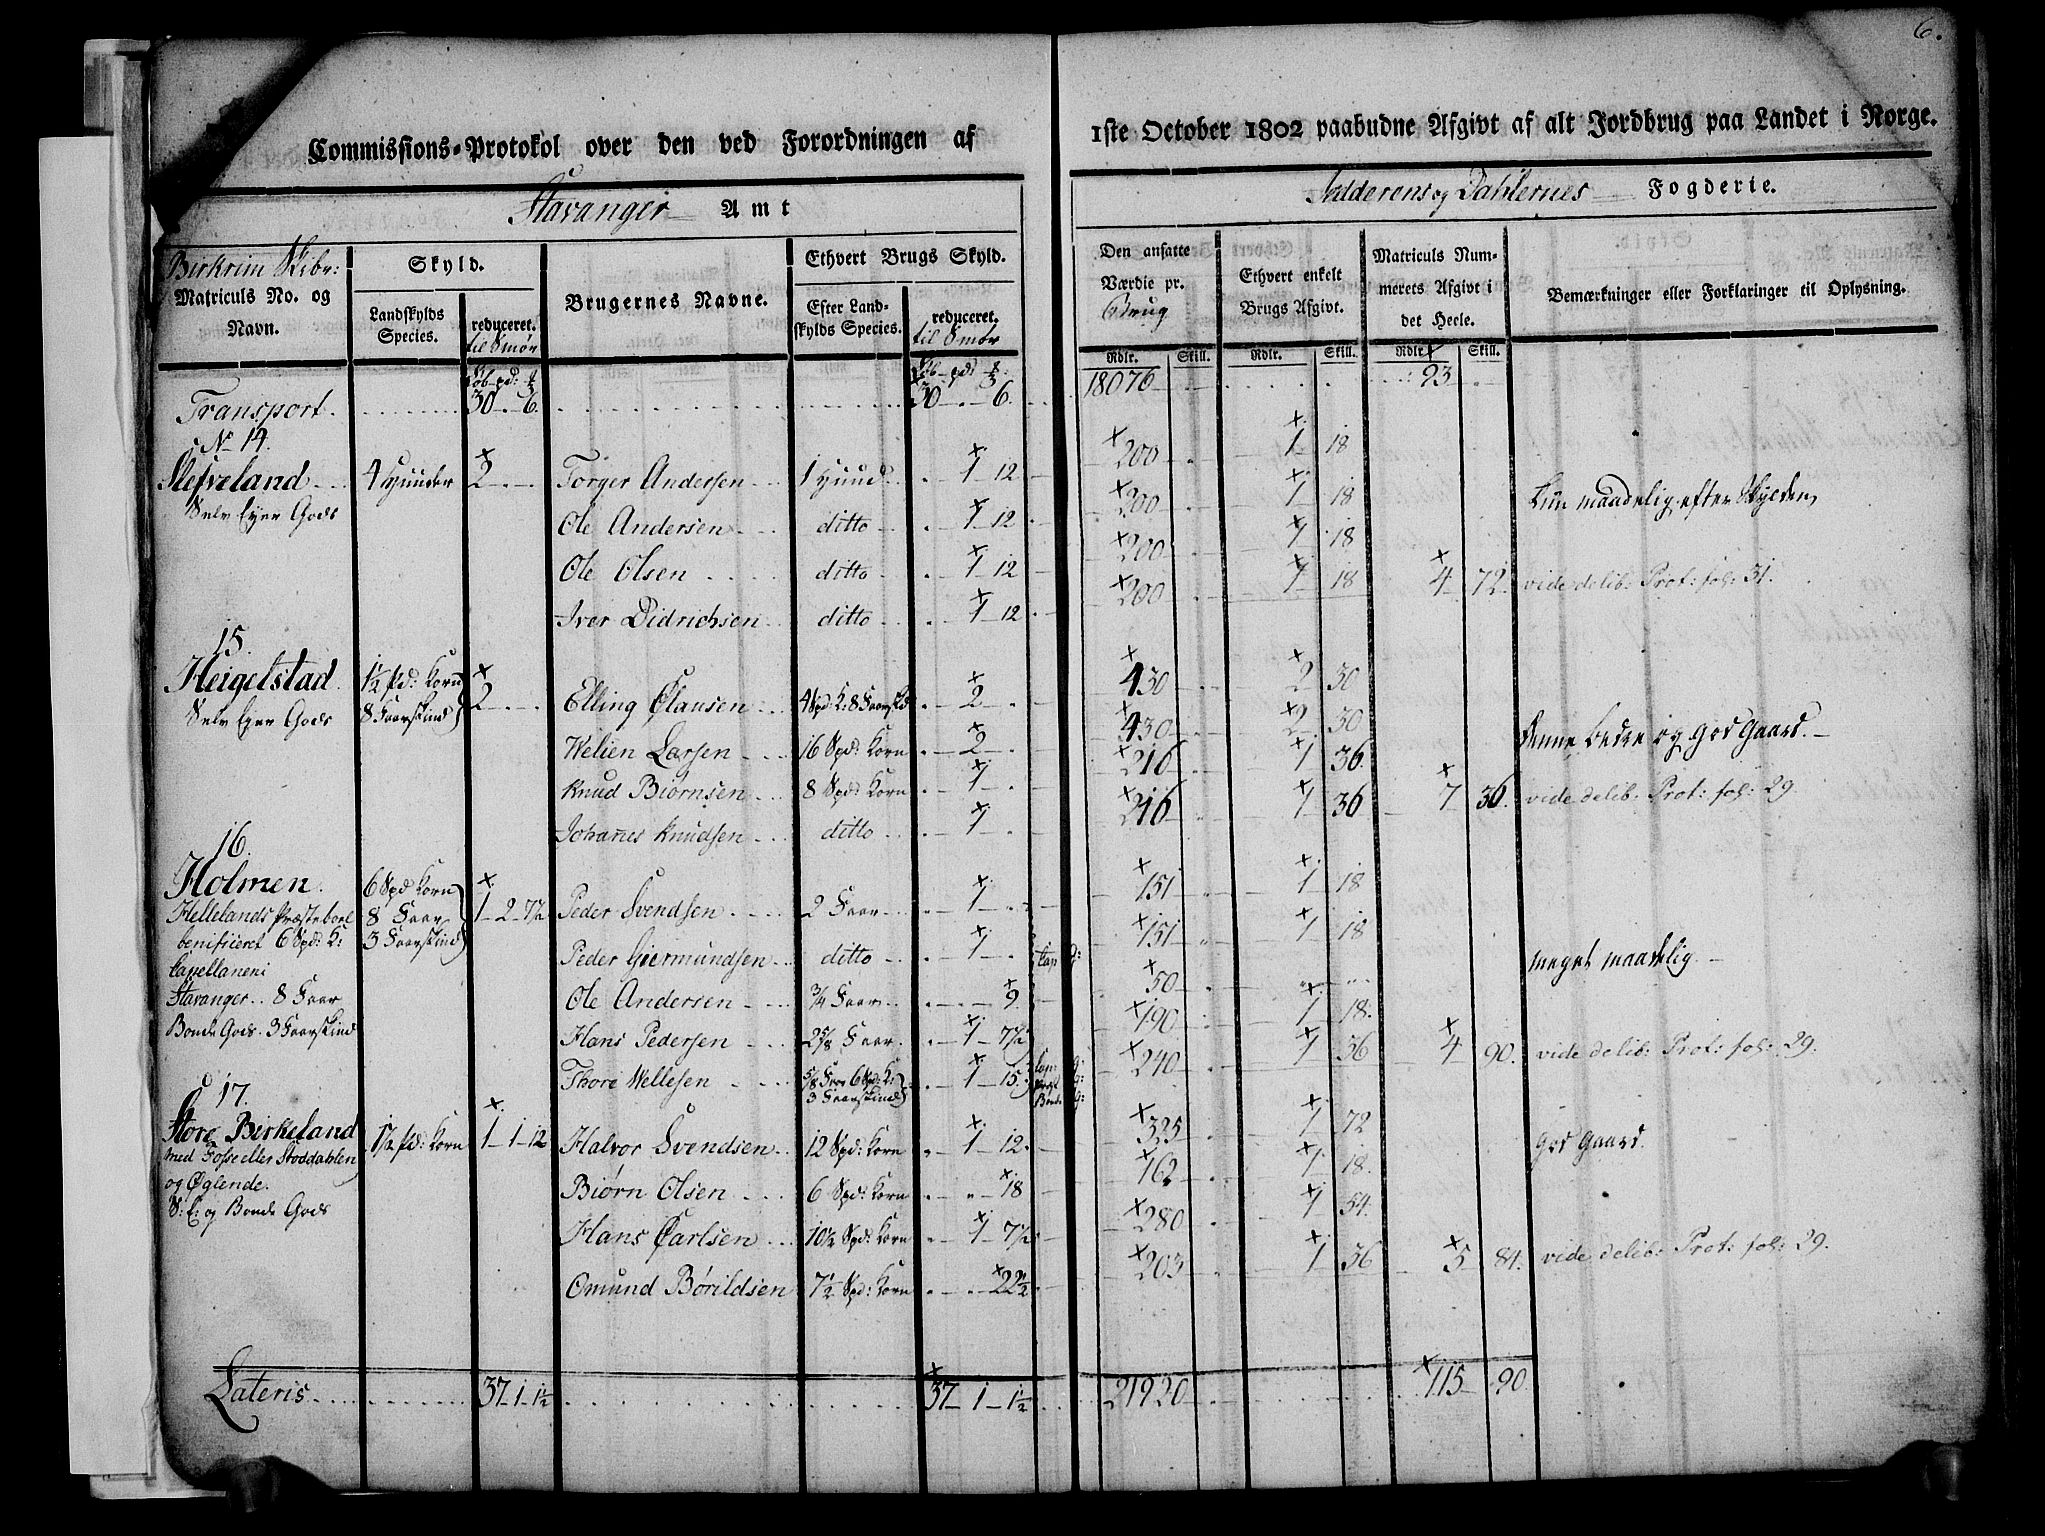 6.
Commissions-Protokol over den ved Forordningen af 1ste October 1802 paabudne Afgivt af alt Jordbrug paa Landet i Norge.
Stavanger Amt
Jedderens og Dahlernes Fogderie.
Birkrim Skibr:
Matriculs No. og Navn.
Skyld.
Landskylds Species.
reduceret. til Smør
Brugernes Navne.
Ethvert Brugs Skyld.
Efter Landskylds Species.
reduceret. til Smør
Den ansatte Værdie pr. Brug
Ethvert enkelt Brugs Afgivt.
Matriculs Nummerets Afgivt i det Heele.
Bemærkninger eller Forklaringer til Oplysning.
Rdlr. Skill. Rdlr. Skill. Rdlr. Skill.
Transport. 30 - 6. 30 - 6. 18076 93
No 14.
Slefveland 4 Huuder 2 Torger Andersen 1 Huud 1 12 200 1 18
Selv Eyer Gods Ole Andersen ditto 1 12 200 1 18 Kun maadelig efter Skylden,
Ole Olsen ditto 1 12 200 1 18
Iver Didrichsen ditto 1 12 200 1 18 4 72. vide delib: Prot: fol: 31.
15.
Heigelstad 1½ Pd: Korn 2 Elling Clausen 4 Spd: K: 8 Faarskd 2 430 2 30
Selv Eyer Gods 8 Faarskind
Welien Larsen 16 Spd: Korn 2 430 2 30 denne beder og god Gaard.
Knud Biørnsen 8 Spd: Korn 1 216 1 36
Johanes Knudsen ditto 1 216 1 36 7 36. vide delib: Prot: fol: 29.
16.
Holmen. 6 Spd Korn 1 - 2 - 7½ Peder Svendsen 2 Faar 1 151 1 18
Hellelands Præstebord 8 Faar
benificeret 6 Spd: K: 3 Faarskind Peder Giermundsen ditto 1 Cap: G: 151 1 18
Capellanen i meget maadelig
Stavanger 8 Faar Ole Andersen ¾ Faar 9 50
Bonde Gods. 3 Faarskind Hans Pedersen 2⅝ Faar 1 7½ 190 1 18.
Thore Wellesen ⅝ Faar 6 Spd: K: 3 Faarskind 1 15 240 1 36 4 90. vide delib: Prot: fol: 29.
17.
Store Birkeland 1½ Pd: Korn 1 - 1 - 12 Halvor Svendsen 12 Spd: Korn 1 12. 325 1 72 god Gaard.
med Fosse eller Stoddahlen
og Øglende. Biørn Olsen 6 Spd: Korn 18 162 1 18.
S: E: og Bonde Gods Hans Carlsen 10½ Spd: Korn 1 7½ 280 1 54.
Omund Børildsen 7½ Spd: Korn 22½ 203 1 36 5 84. vide delib: Prot: fol: 29.
Lateris 37 - 1 - 1½ 37 - 1 - 1½ 21920 115 90